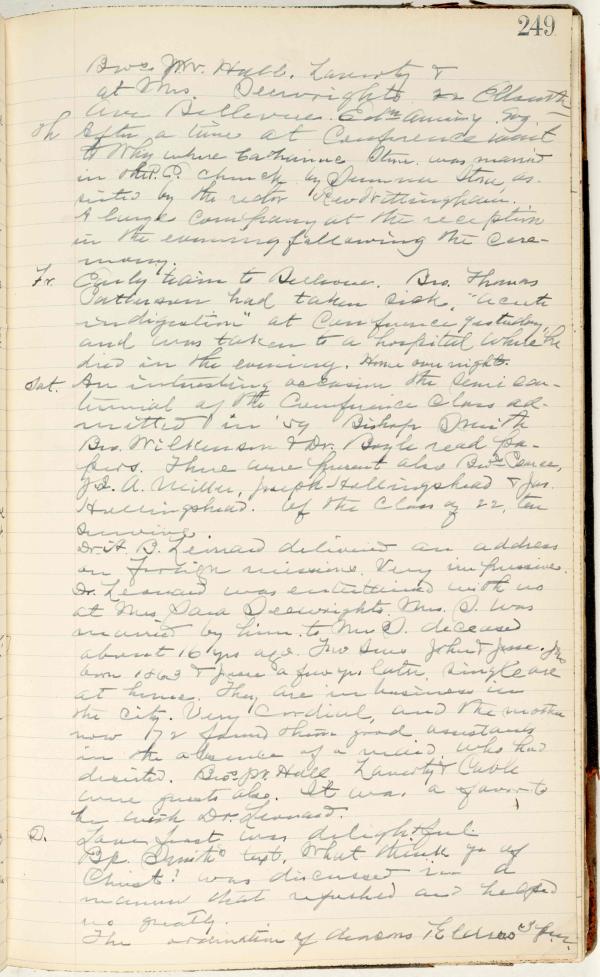 249
Bros. J.W. Hall, Laverty &
at Mrs. Seewrights 22 Ellsworth
Ave Bellevue.
Th After a time at Conference went
to where Catharine Stone was married
in the P.E. church by Sumner Stone, as-
sisted by the rector Rev Wittingham.
A large company at the reception
in the evening following the cere-
mony.
Fr. Early train to Bellevue. Bro. Thomas
Patterson had taken sick, "acute
indigestion" at Conference yesterday,
and was taken to a hospital where he
died in the evening. Home over night.
Sat. An interesting occasion the semi cen-
tennial of the Conference Class ad-
mitted in '59 Bishop Smith
Bro. Wilkinson & Dr. Boyle read pa-
pers. There were present also Bros Pearce,
J. A. Miller, Joseph Hollingshead & Jas.
Hollingshead. Of the Class of 22, ten
survive.
Dr. A. B. Leonard delivered an address
on foreign missions. Very impressive.
Dr. Leonard was entertained with us
at Mrs. Sara Seewrights. Mrs. S. was
married by him to Mr S. deceased
about 16 yrs ago. Two sons John & Jesse. Jno
born 1863 & Jesse a few yrs later, single are
at home. They are in business in
the city. Very cordial, and the mother
now 72 found them good assistants
in the absence of a maid who had
deserted. Bros JW Hall, Laverty & Cable
were guests also. It was a favor to
be with Dr. Leonard.
S. Love feast was delightful.
Bp. Smiths text, What think ye of
Christ? was discussed in a
manner that refreshed and helped
us greatly.
The ordination of deacons & Elders